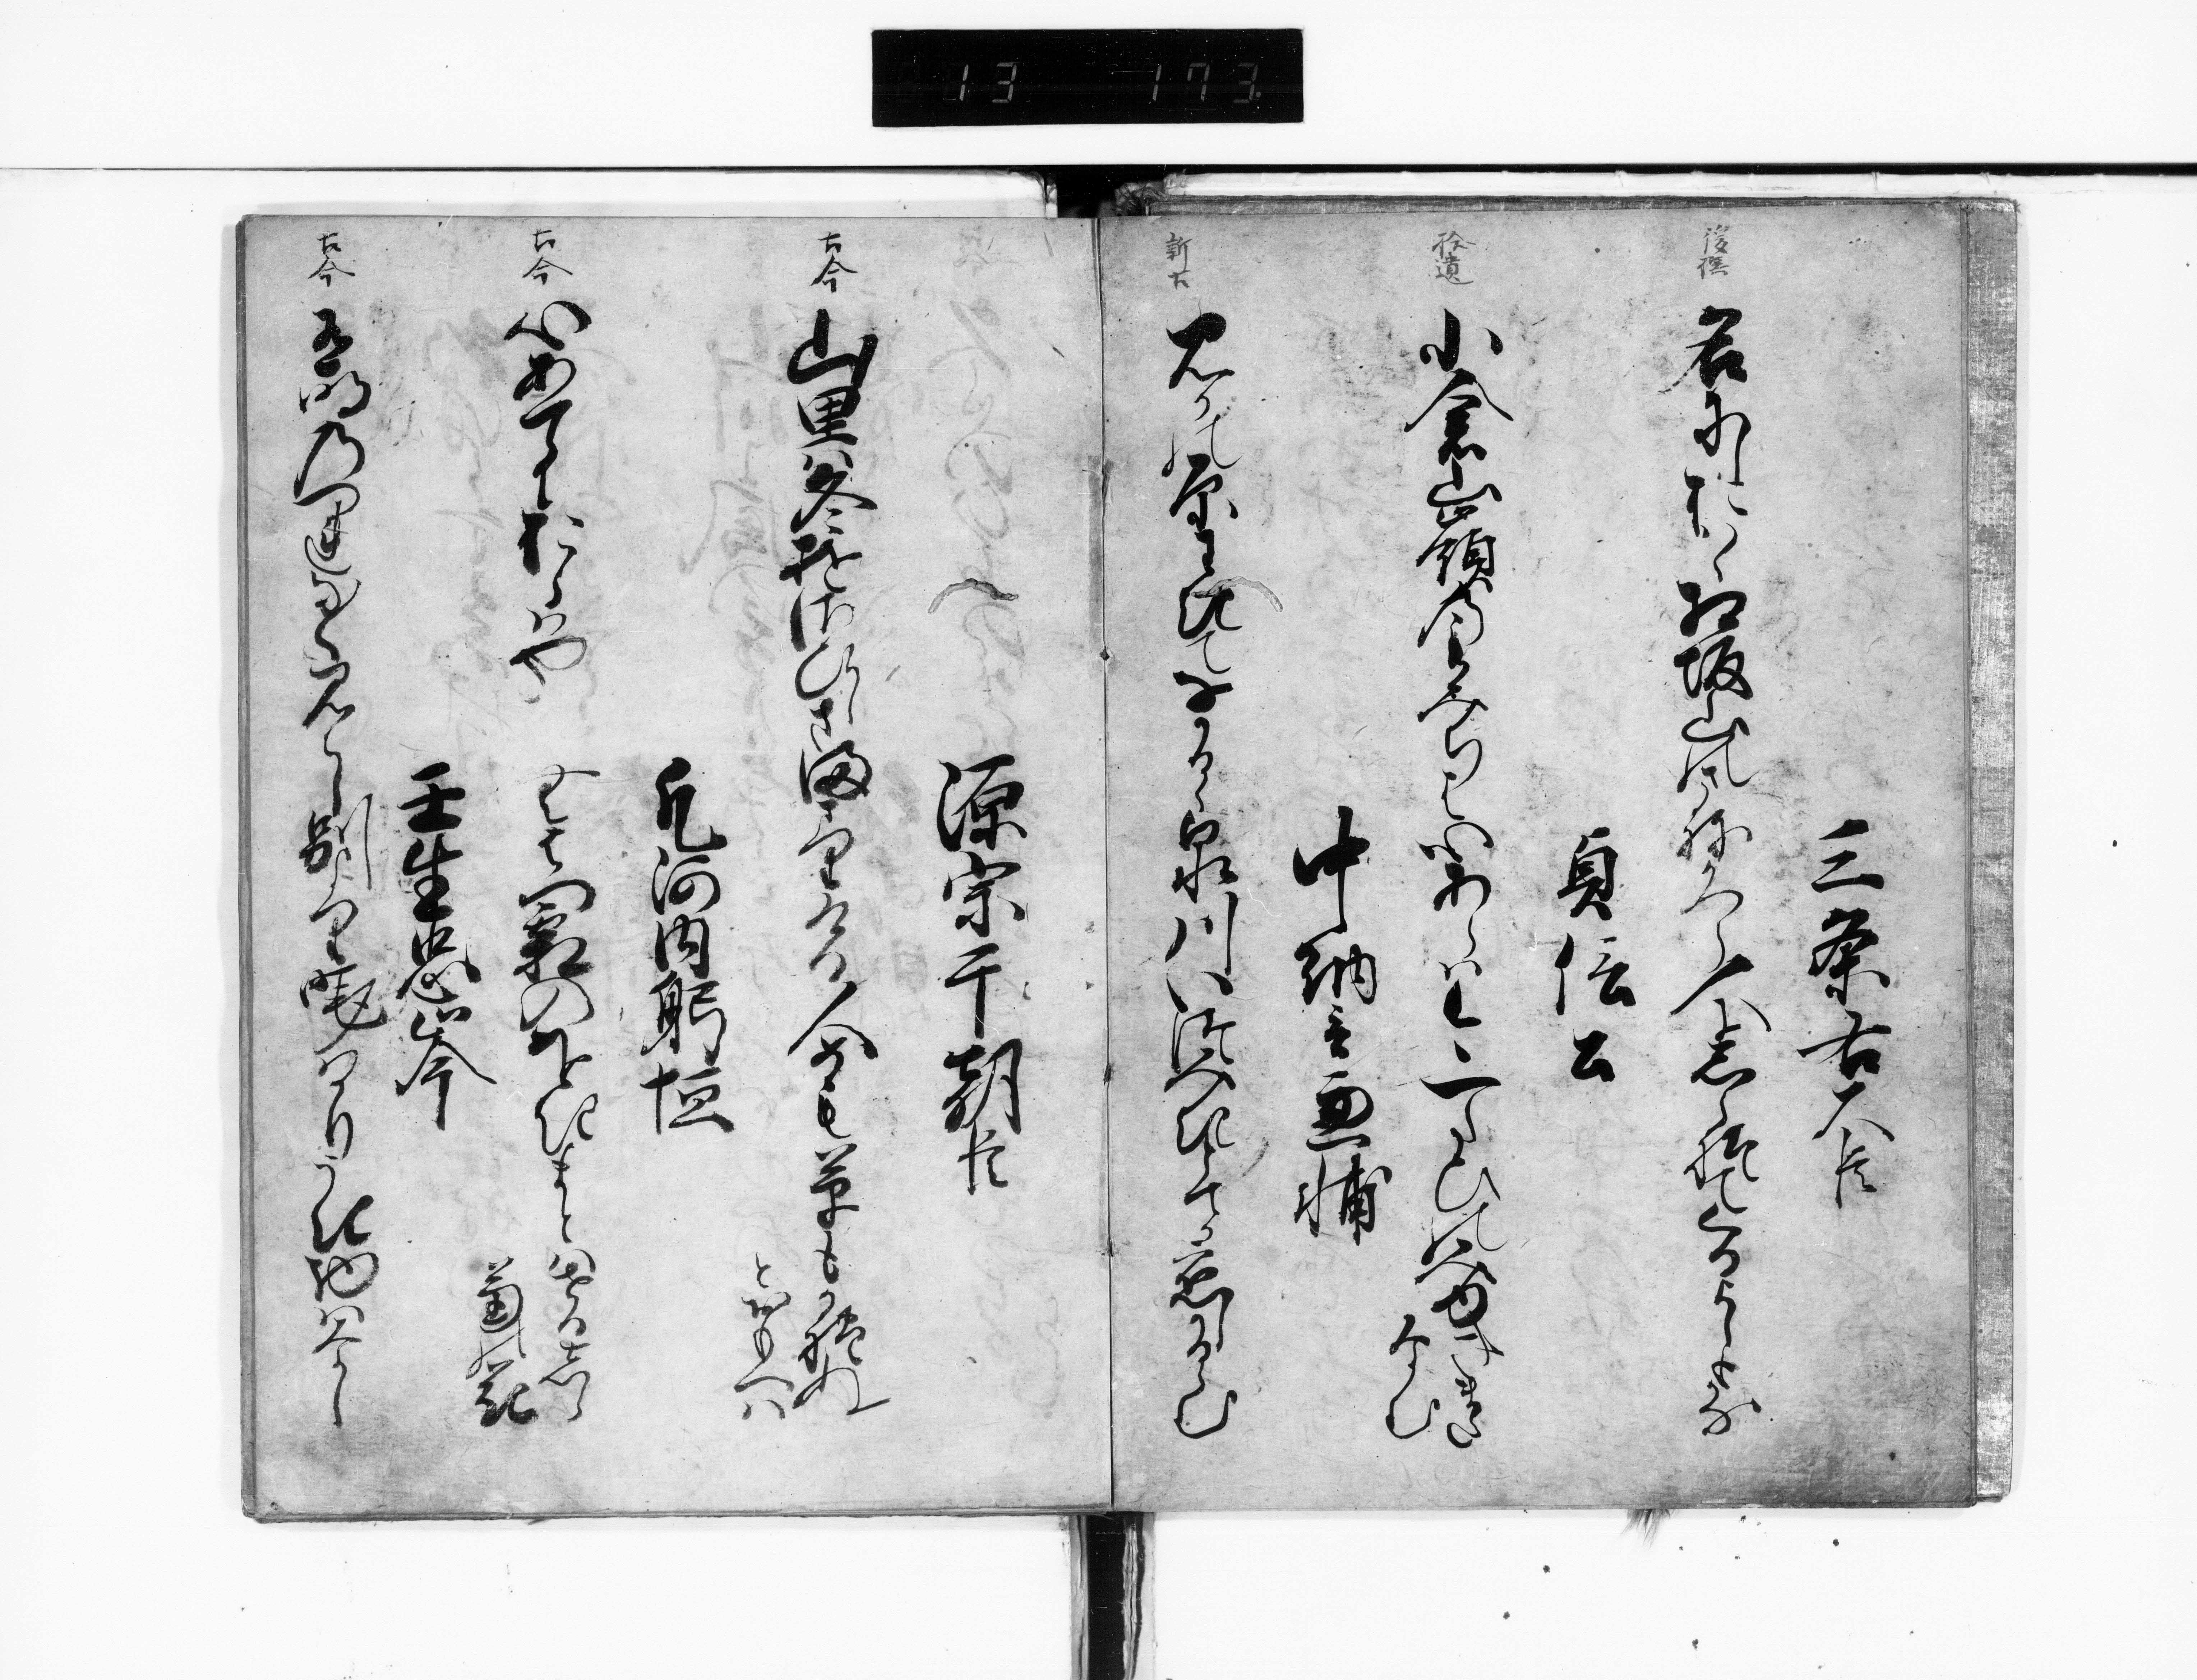 13 173
三条右大臣
後撰
名にしおはゝ相坂山のさねかつら人にしられてくるよしもかな
貞信公
拾遺
小倉山嶺のもみち葉心あらは今一たひのみゆきまた
なむ
中納言兼輔
新古
みかの原わきてなかるゝ泉川いつみきとてか恋しかるらむ
源宗于朝臣
古今
山里は冬そさひしさまさりける人めも草もかれぬ
とおもへは
凡河内躬恒
古今
心あてにおらはや
おらむ初霜のをきまとはせるしら
菊の花
壬生忠岑
古今
有明のつれなくみえし別より暁はかりうき物はなし